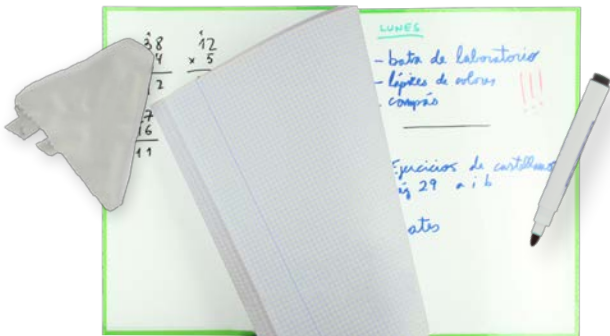 38 12
4 x 5
2
7
6
11
LUNES
- bata de laboratorio
- lápices de colores
- compás
!!!
Ejercicios de castellano
29 a i b